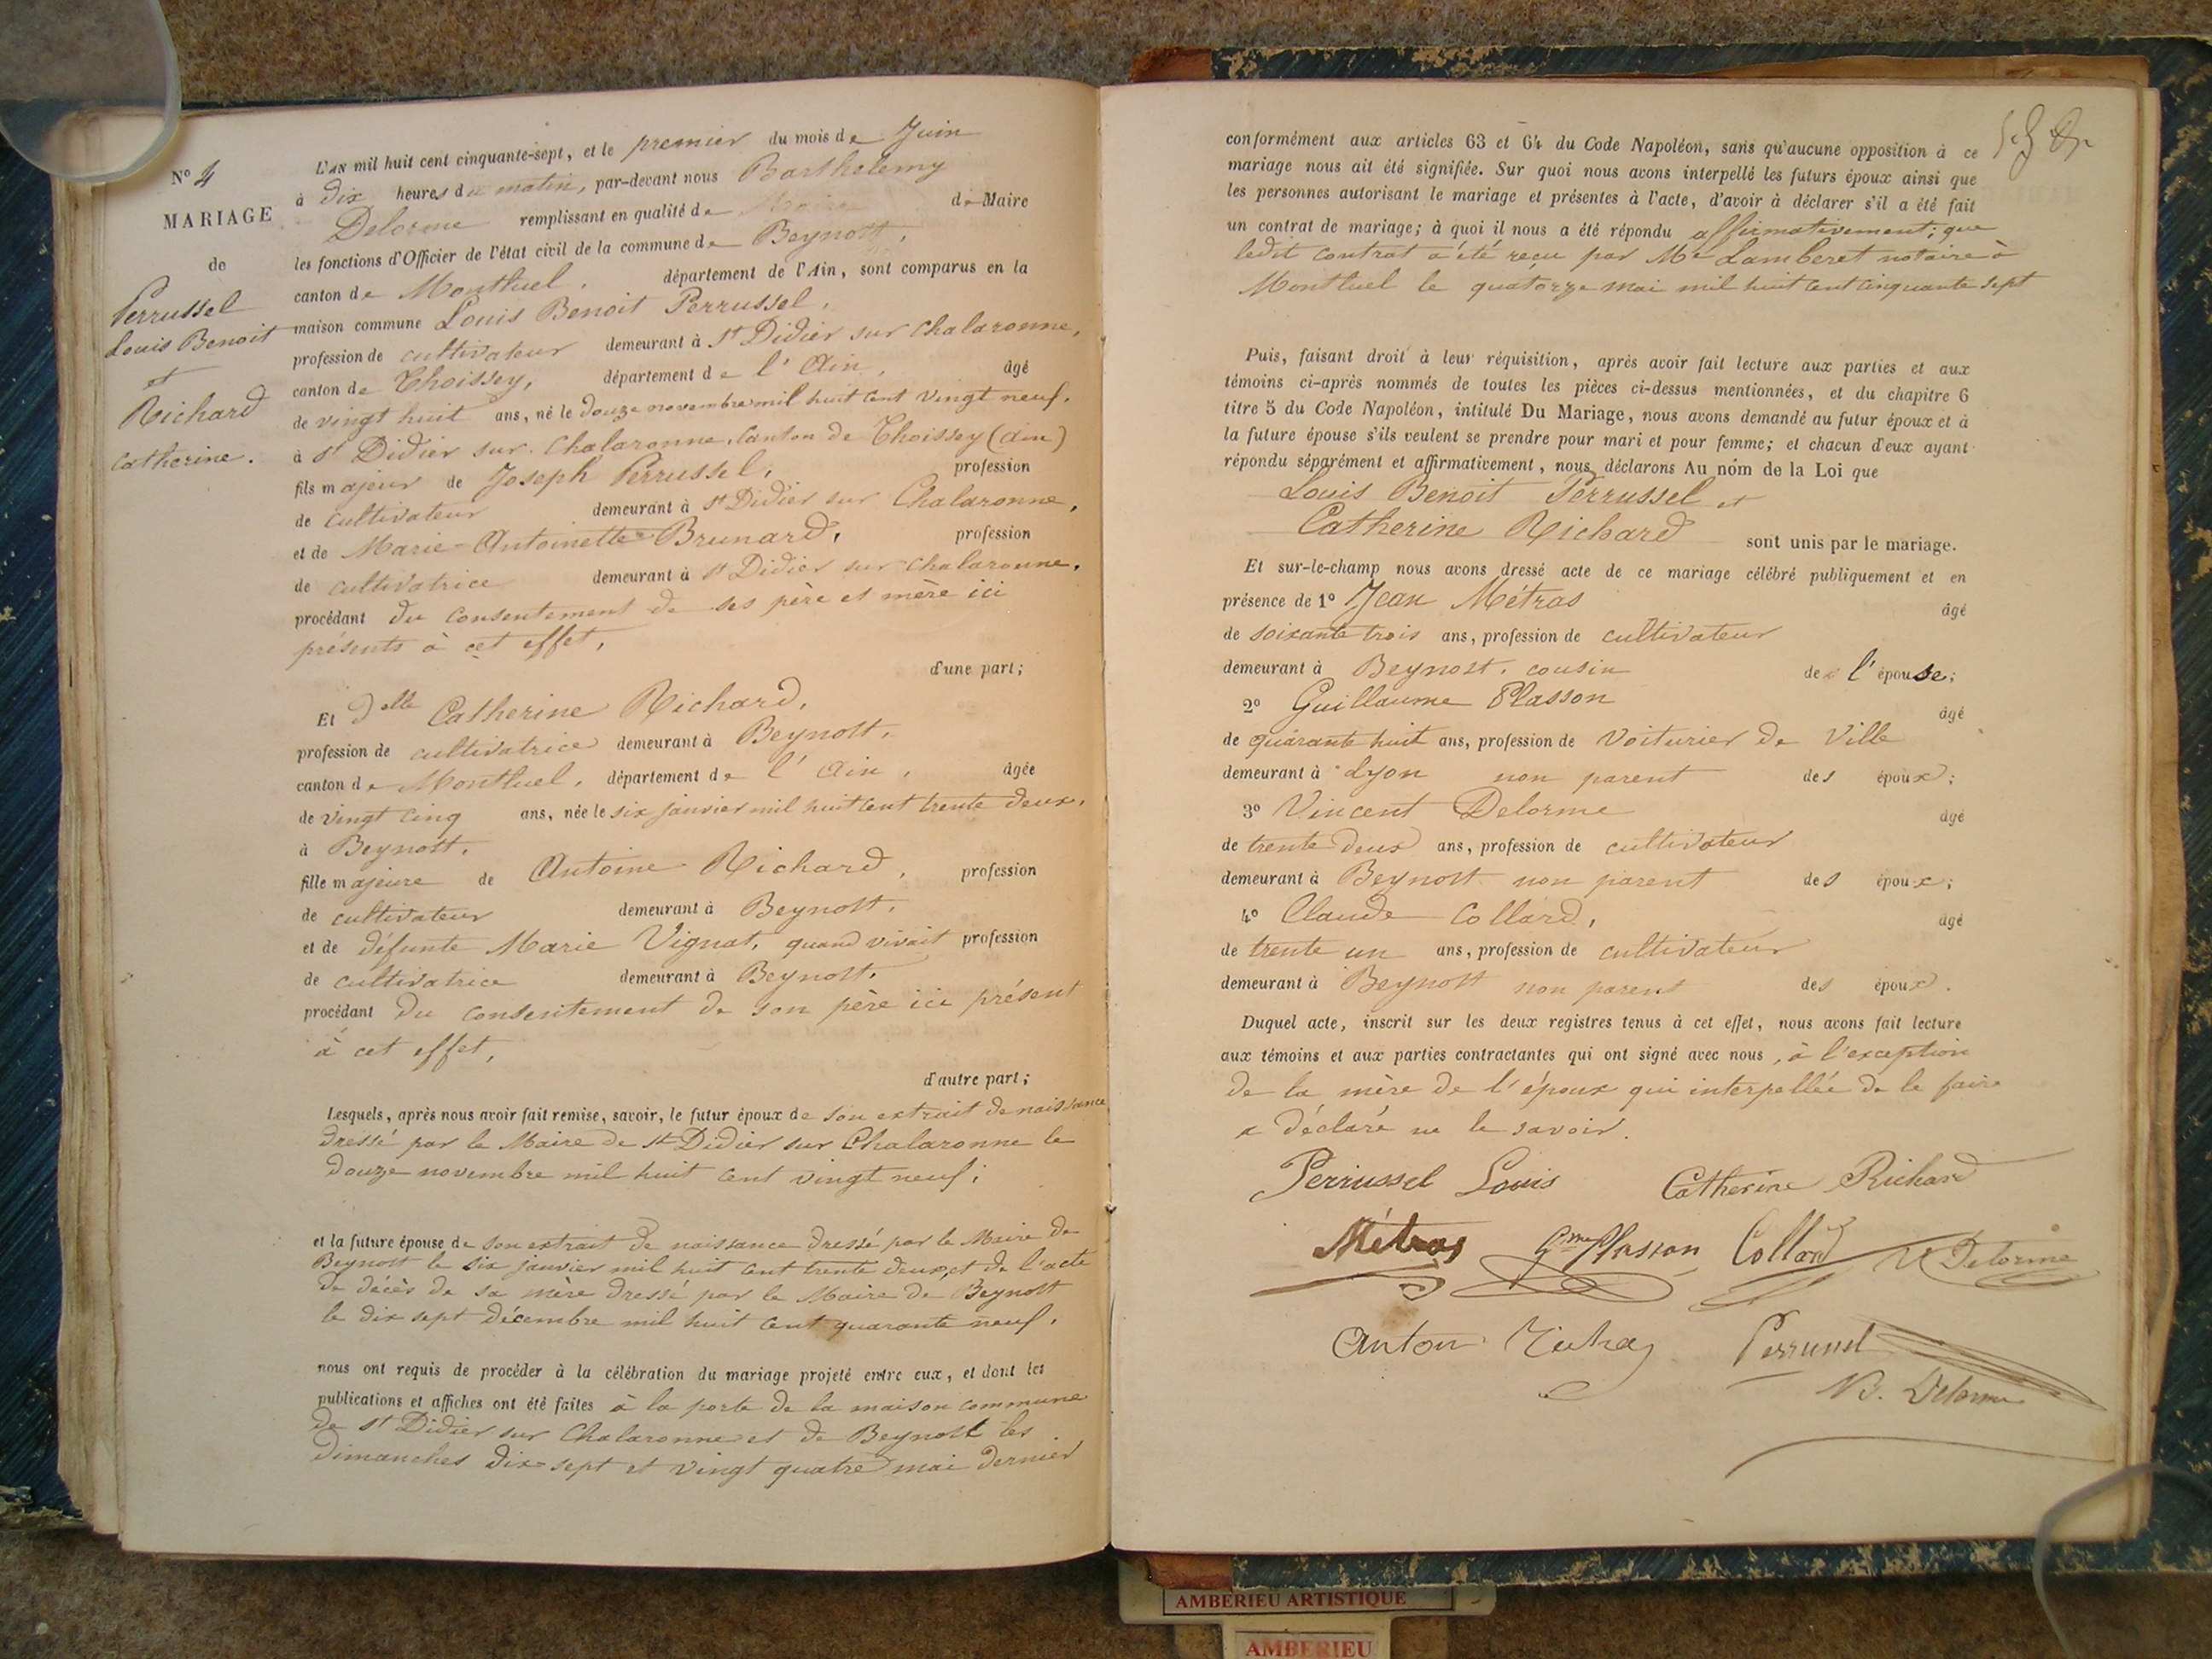 N° 4
MARIAGE
de
Perrussel
Louis Benoit
et
Richard
Catherine.
L'an mil huit cent cinquante-sept, et le premier du mois de Juin
à dix heures du matin, par-devant nous Barthelemy
Delorme remplissant en qualité de Maire de Maire
les fonctions d'Officier de l'état civil de la commune de Beynost,
canton de Montluel, département de l'Ain, sont comparus en la
maison commune Louis Benoit Perrussel,
profession de cultivateur demeurant à St Didier sur Chalaronne,
canton de Thoissey, département de l'Ain, âgé
de vingt huit ans, né le douze novembre mil huit cent vingt neuf,
à St Didier sur Chalaronne, canton de Thoissey (Ain)
fils majeur de Joseph Perrussel, profession
de cultivateur demeurant à St Didier sur Chalaronne,
et de Marie-Antoinette Brunard, profession
de cultivatrice demeurant à St Didier sur Chalaronne,
procédant du consentement de ses père et mère ici
présents à cet effet,
d'une part;
Et dlle Catherine Richard,
profession de cultivatrice demeurant à Beynost,
canton de Montluel, département de l'Ain, âgée
de vingt cinq ans, née le six janvier mil huit cent trente deux,
à Beynost,
fille majeure de Antoine Richard, profession
de cultivateur demeurant à Beynost,
et de défunte Marie Vignat, quand vivait profession
de cultivatrice demeurant à Beynost,
procédant du consentement de son père ici présent
à cet effet,
d'autre part;
Lesquels, après nous avoir fait remise, savoir, le futur époux de son extrait de naissance
dressé par le Maire de St Didier sur Chalaronne le
douze novembre mil huit cent vingt neuf;
et la future épouse de son extrait de naissance dressé par le Maire de
Beynost le six janvier mil huit cent trente deux, et de l'acte
de décès de sa mère dressé par le Maire de Beynost
le dix sept Décembre mil huit cent quarante neuf,
nous ont requis de procéder à la célébration du mariage projeté entre eux, et dont les
publications et affiches ont été faites à la porte de la maison commune
de St Didier sur Chalaronne et de Beynost les
dimanches dix-sept et vingt quatre mai dernier
conformément aux articles 63 et 64 du Code Napoléon, sans qu'aucune opposition à ce
mariage nous ait été signifiée. Sur quoi nous avons interpellé les futurs époux ainsi que
les personnes autorisant le mariage et présentes à l'acte, d'avoir à déclarer s'il a été fait
un contrat de mariage; à quoi il nous a été répondu affirmativement; que
ledit contrat a été reçu par Me Lamberet notaire à
Montluel le quatorze mai mil huit cent cinquante sept
Puis, faisant droit à leur réquisition, après avoir fait lecture aux parties et aux
témoins ci-après nommés de toutes les pièces ci-dessus mentionnées, et du chapitre 6
titre 5 du Code Napoléon, intitulé Du Mariage, nous avons demandé au futur époux et à
la future épouse s'ils veulent se prendre pour mari et pour femme; et chacun d'eux ayant
répondu séparément et affirmativement, nous déclarons Au nom de la Loi que
Louis Benoit Perrussel et
Catherine Richard sont unis par le mariage.
Et sur-le-champ nous avons dressé acte de ce mariage célébré publiquement et en
présence de 1° Jean Métras âgé
de soixante trois ans, profession de cultivateur
demeurant à Beynost, cousin de l'épouse;
2° Guillaume Plasson âgé
de quarante huit ans, profession de Voiturier de Ville
demeurant à Lyon non parent des époux;
3° Vincent Delorme âgé
de trente deux ans, profession de cultivateur
demeurant à Beynost non parent des époux;
4° Claude Collard, âgé
de trente un ans, profession de cultivateur
demeurant à Beynost non parent des époux.
Duquel acte, inscrit sur les deux registres tenus à cet effet, nous avons fait lecture
aux témoins et aux parties contractantes qui ont signé avec nous, à l'exception
de la mère de l'époux qui interpellée de le faire
a déclaré ne le savoir.
Perrussel Louis Catherine Richard
Métras Gme Plasson Collard V Delorme
Anton Perrussel
B. Delorme
AMBERIEU ARTISTIQUE
AMBERIEU